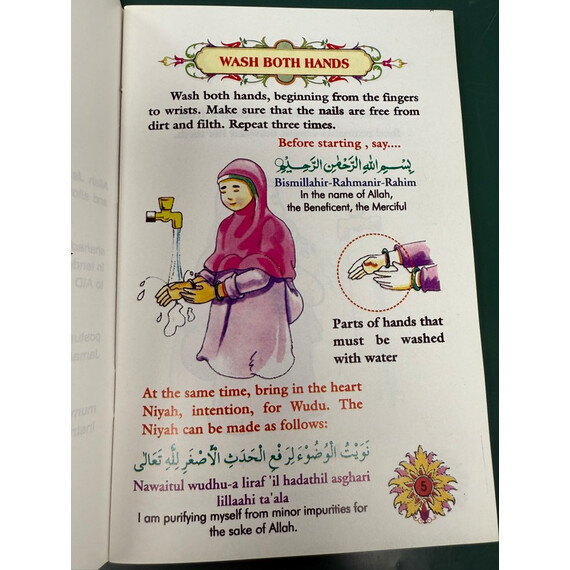 WASH BOTH HANDS
Wash both hands, beginning from the fingers
to wrists. Make sure that the nails are free from
dirt and filth. Repeat three times.
Before starting , say....
بِسْمِ اللهِ الرَّحْمٰنِ الرَّحِيْمِ
Bismillahir-Rahmanir-Rahim
In the name of Allah,
the Beneficent, the Merciful
Parts of hands that
must be washed
with water
At the same time, bring in the heart
Niyah, intention, for Wudu. The
Niyah can be made as follows:
نَوَيْتُ الْوُضُوْءَ لِرَفْعِ الْحَدَثِ الْاَصْغَرِ لِلّٰهِ تَعَالٰى
Nawaitul wudhu-a liraf 'il hadathil asghari
lillaahi ta'ala
I am purifying myself from minor impurities for
the sake of Allah.
5